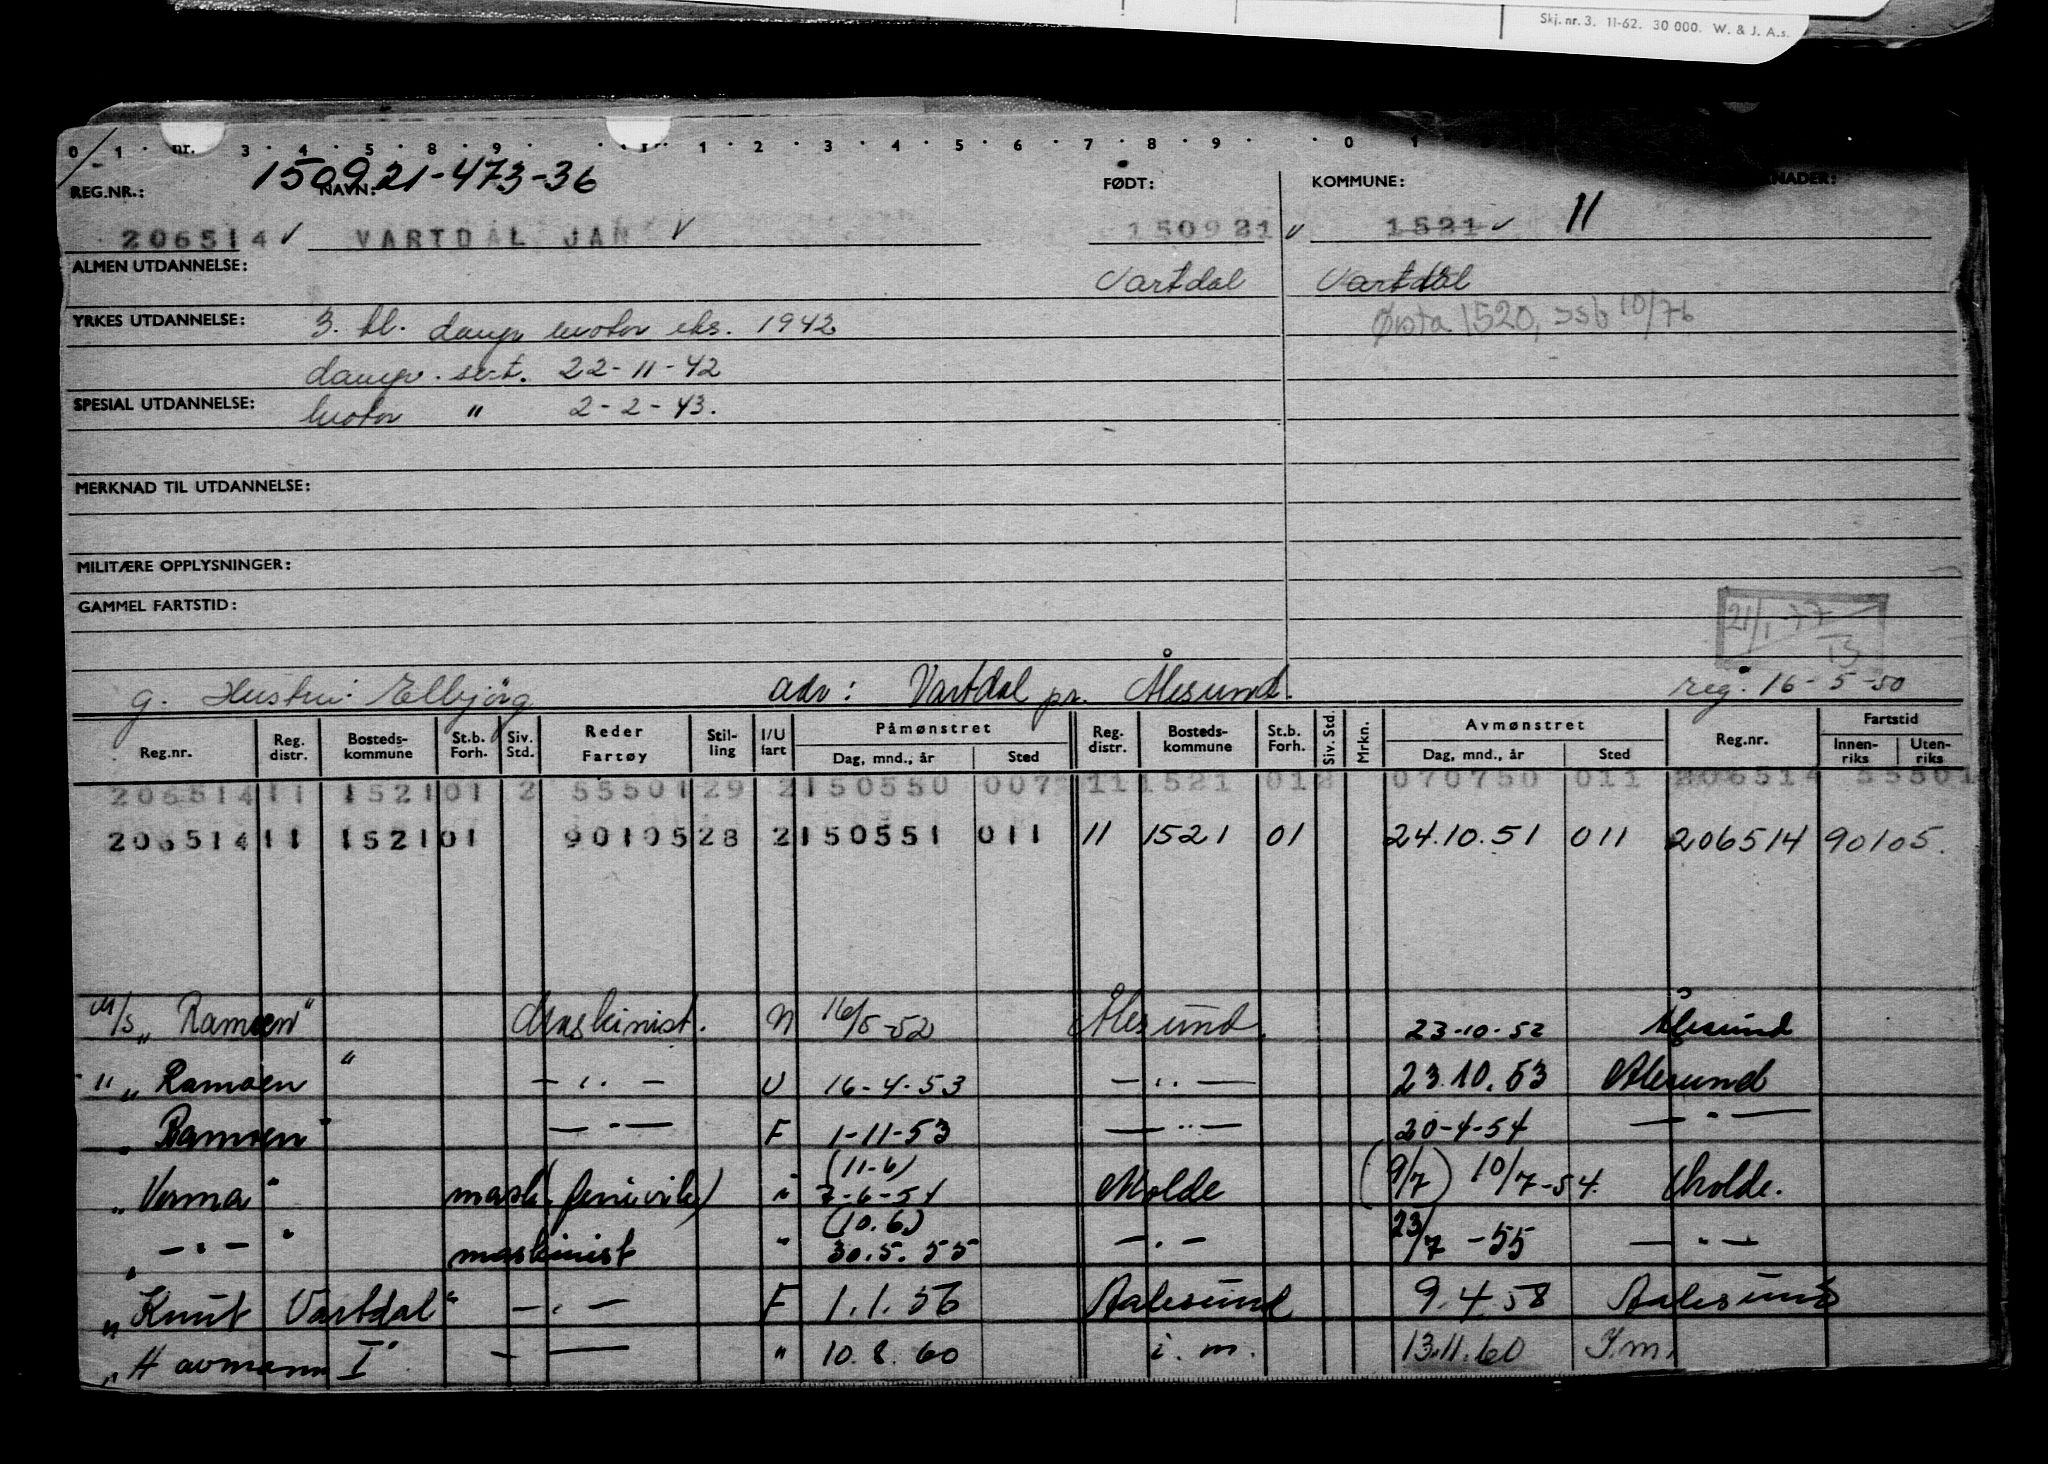 Skj. nr. 3. 11-62. 30 000. W. & J. A.s.
0 1 · nr. 3 · 4 · 5 · 8 · 9 · 1 · 2 · 3 · 4 · 5 · 6 · 7 · 8 · 9 · 0 1
150921-473-36
REG.NR.: NAVN: FØDT: KOMMUNE:
206514 √ VARTDAL JAN √ 150921 √ 1521 √ 11
ALMEN UTDANNELSE: Vartdal Vartdal
YRKES UTDANNELSE: 3. kl. damp motor eks. 1942 Ørsta 1520, 10/76
damp. sert. 22-11-42
SPESIAL UTDANNELSE: motor " 2-2-43.
MERKNAD TIL UTDANNELSE:
MILITÆRE OPPLYSNINGER:
GAMMEL FARTSTID:
21/1-77
g. Hustru: Elbjörg adr: Vartdal pr. Ålesund. reg. 16-5-50
Reg.nr. Reg. distr. Bosteds-kommune St.b. Forh. Siv. Std. Reder Fartøy Stil-ling I/U fart Påmønstret Dag, mnd., år Sted Reg. distr. Bosteds-kommune St.b. Forh. Siv. Std. Mrkn. Avmønstret Dag, mnd., år Sted Reg.nr. Fartstid Innen-riks Uten-riks
206514 11 1521 01 2 55501 29 2 150550 007 11 1521 01 2 070750 011 206514 55501
206514 11 1521 01 90105 28 2 150551 011 11 1521 01 24.10.51 011 206514 90105.
M/S "Ramoen" Maskinist. N 16/5-52 Ålesund. 23-10-52 Ålesund
" "Ramoen" — " — U 16-4-53 — " — 23.10.53 Ålesund
"Ramoen" — " — F 1-11-53 — " — 20-4-54 — " —
(11-6)
"Verma" mask. (ferievik) i 7-6-54 Molde (9/7) 10/7-54. Molde.
(10.6.)
" — " — " maskinist " 30.5.55 — " — 23/7-55 — " —
"Knut Vartdal" — " — F 1.1.56 Aalesund 9.4.58 Aalesund
"Havmann I" — " — " 10.8.60 i.m. 13.11.60 I.m.